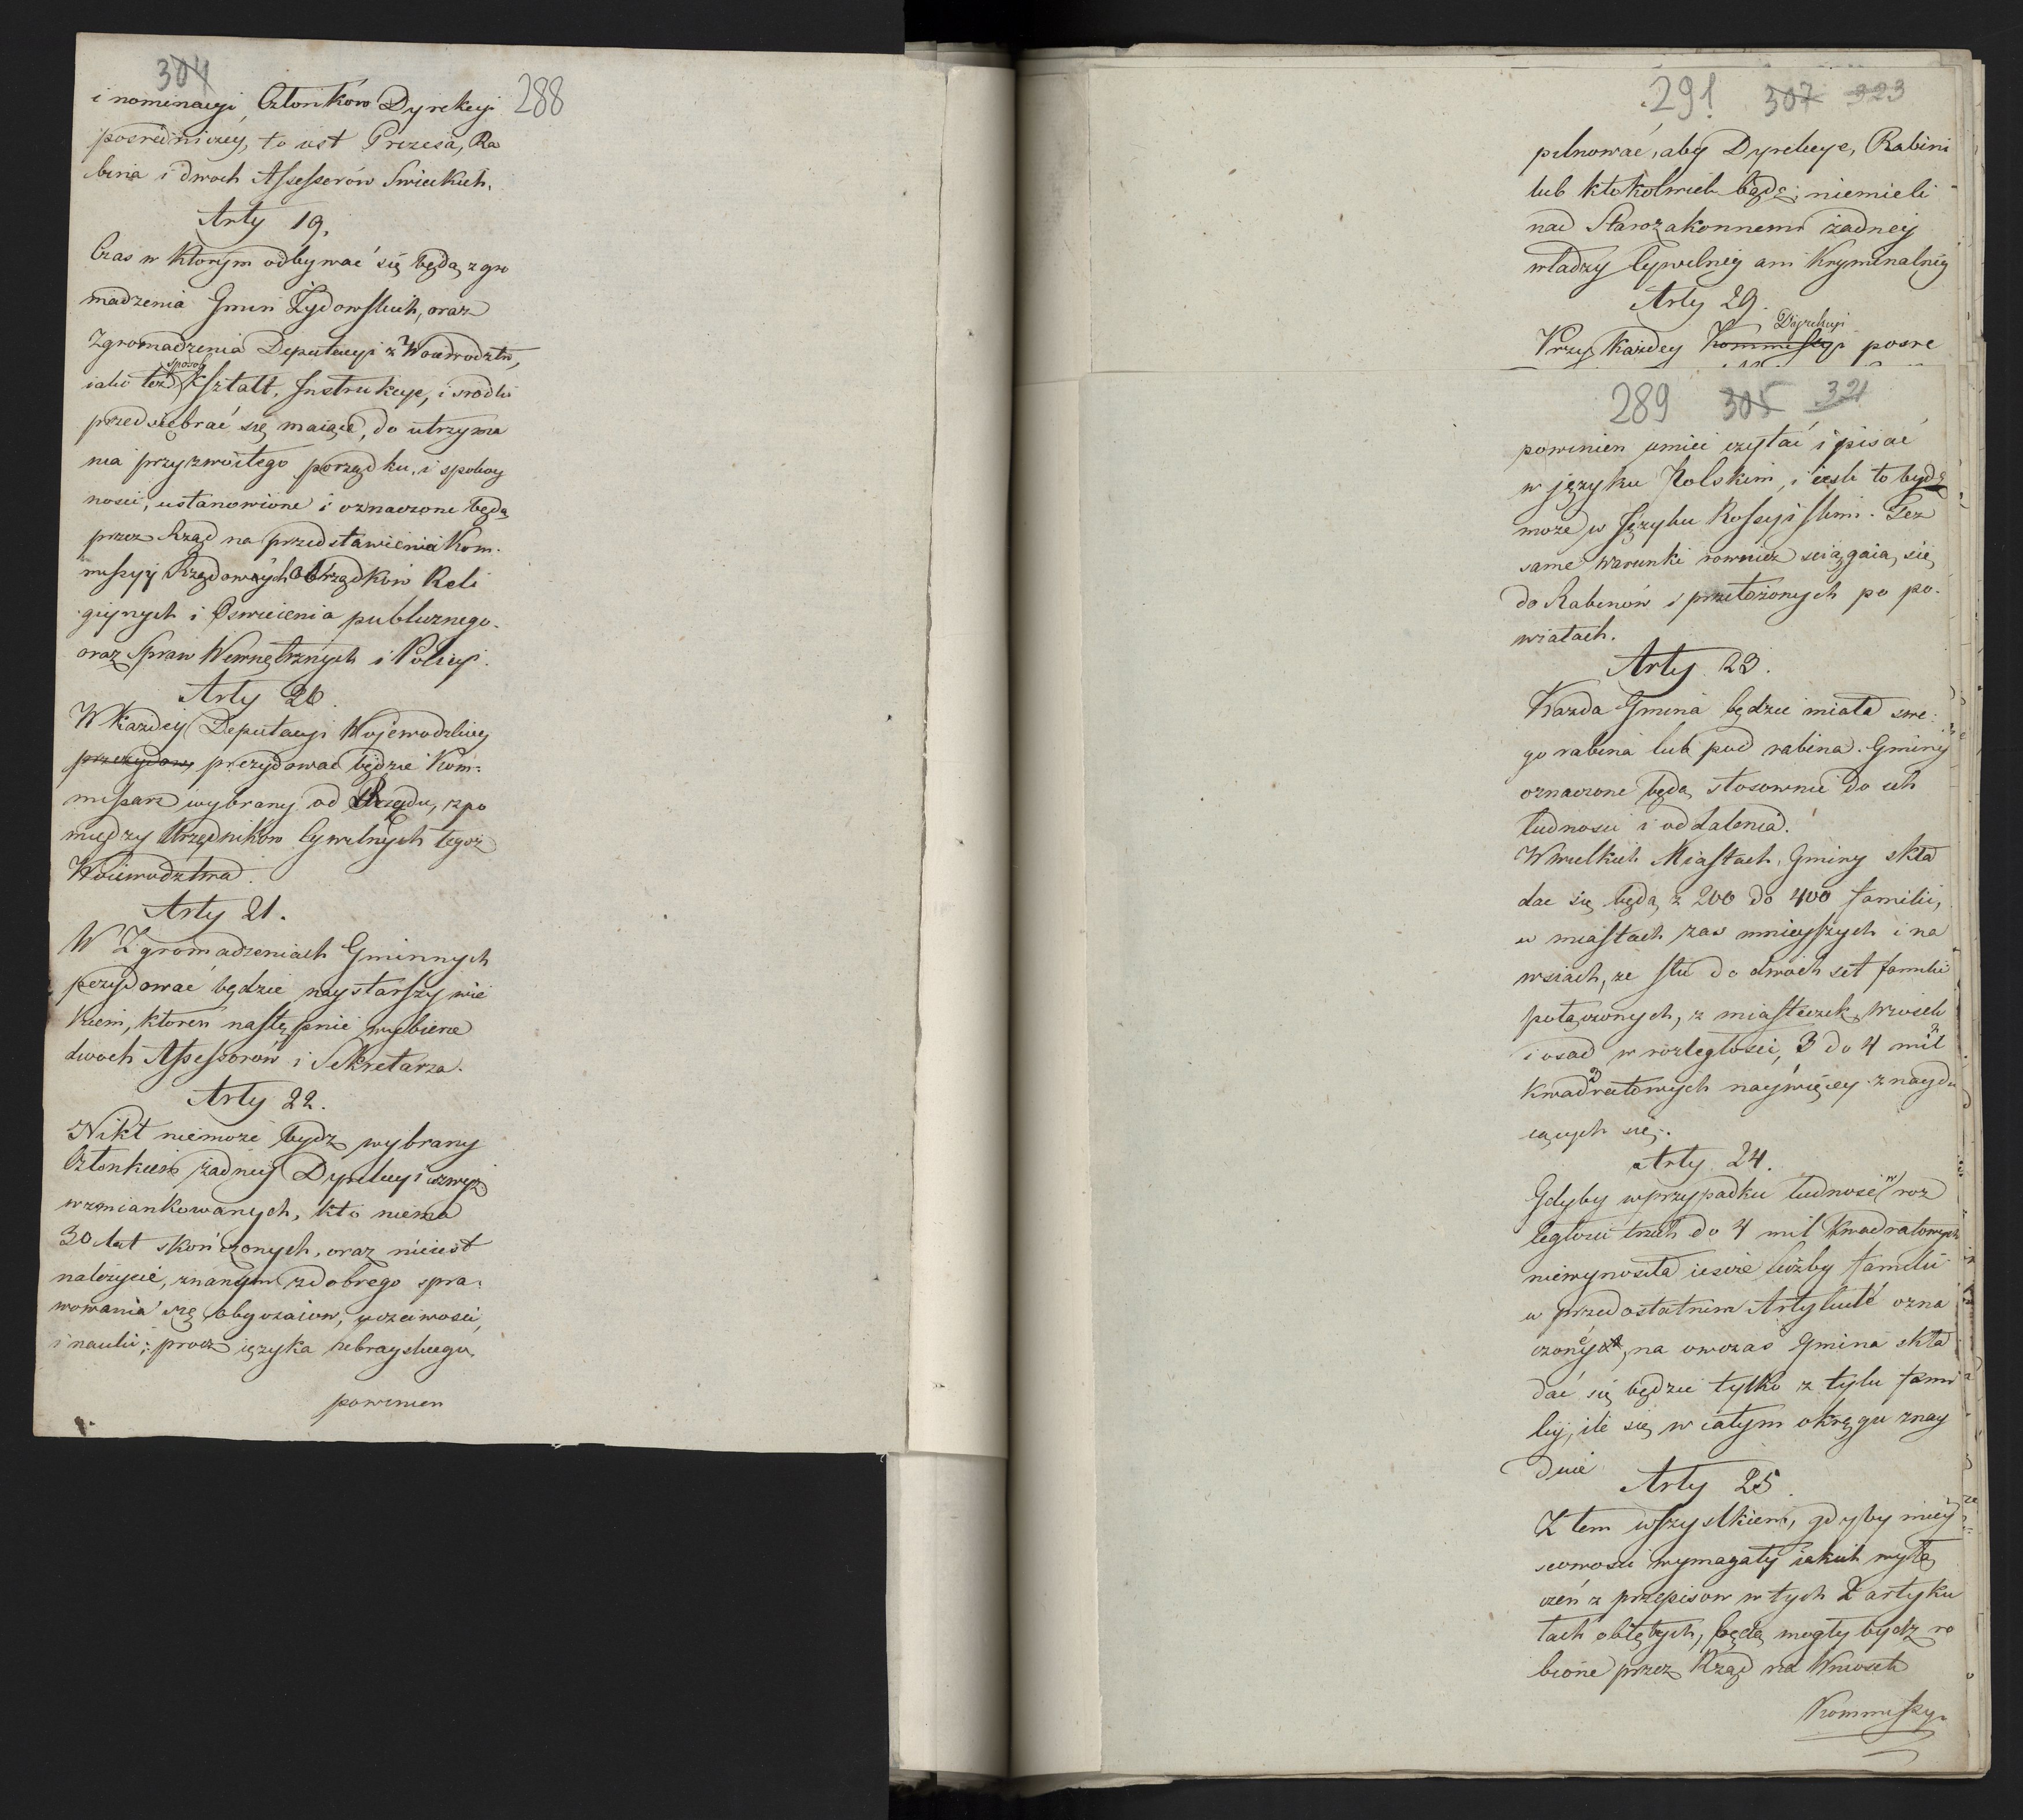 304
288
i nominacyi Członków Dyrekcyi
posredniczey, to iest Prezesa, Ra
bina i dwoch Assessorów Swieckich.
Arty 19.
Czas w którym odbywać się będą zgro
madzenia Gmin Żydowskich, oraz
Zgromadzenia Deputacyi z Woiewodztw,
iako też sposób kształt, Instrukcye, i srodki
przedsiębrać się maiące, do utrzyma
nia przyzwoitego porządku, i spokoy
nosci, ustanowione i oznaczone będą
przez Rząd na przedstawienia Kom.
missyi Rządowych Obrządków Reli
giynych i Oswiecenia publicznego.
oraz Spraw Wewnętrznych i Policyi.
Arty 20.
W Kazdey Deputacyi Wojewodzkiey
prezydowac będzie Kom=
missarz wybrany od Rządu, z po
między Urzędników Cywilnych tegoż
Woiewodztwa.
Arty 21.
W Zgromadzeniach Gminnych
prezydować będzie naystarszy wie
kiem, ktoren następnie wybierze
dwoch Assessorów i Sekretarza.
Arty 22.
Nikt niemoże bydz wybrany
Członkiem żadney Dyrekcyi zwyż
wzmiankowanych, kto niema
30 lat skończonych, oraz nieiest
należycie, znanym z dobrego spra=
wowania się, obyczaiow, uczciwosci,
i nauki; procz ięzyka hebrayskiego.
powinien
291 307 323
pilnować, aby Dyrekcye, Rabini
lub ktokolwiek bądź niemieli
nad Starozakonnemi żadney
władzy Cywilney ani Kryminalney
Arty 29.
Dyrekcyi
Przy Każdey Kommissyi posre
289 305 321
powinien umieć czytać i pisać
w języku Polskim, i iesli to bydź
może w Języku Rossyiskim. Też
same warunki rownież sciągaią się
do Rabinów i przełożonych po po=
wiatach.
Arty 23.
Kazda Gmina będzie miała swe=
go rabina lub pod rabina. Gminy
oznaczone będą stosownie do ich
ludnosci i oddalenia.
W wielkich Miastach, Gminy skła
dac się będą z 200 do 400 familii,
w miastach zas mnieyszych i na
wsiach, ze stu do dwoch set familii
połączonych, z miasteczek, wiosek
i osad w rozległosci, 3 do 4 mil
kwadratowych naywięcey znaydu
iących się.
Arty 24.
Gdyby w przypadku ludnosć w roz
ległosci trzech do 4 mil kwadratowych
niewynosiła iescze liczby familii
w przedostatnim Artykule ozna
czoney, na owczas Gmina skła
dać się będzie tylko z tylu fami
liy, ile się w całym okręgu znay
dzie
Arty 25.
Z tem wszystkiem, gdyby miey
scowosci wymagały iakich wyłą
czeń z przepisow w tych 2 artyku
łach obiętych, będą mogły bydz ro
bione przez Rząd na Wniosek
Kommissyi